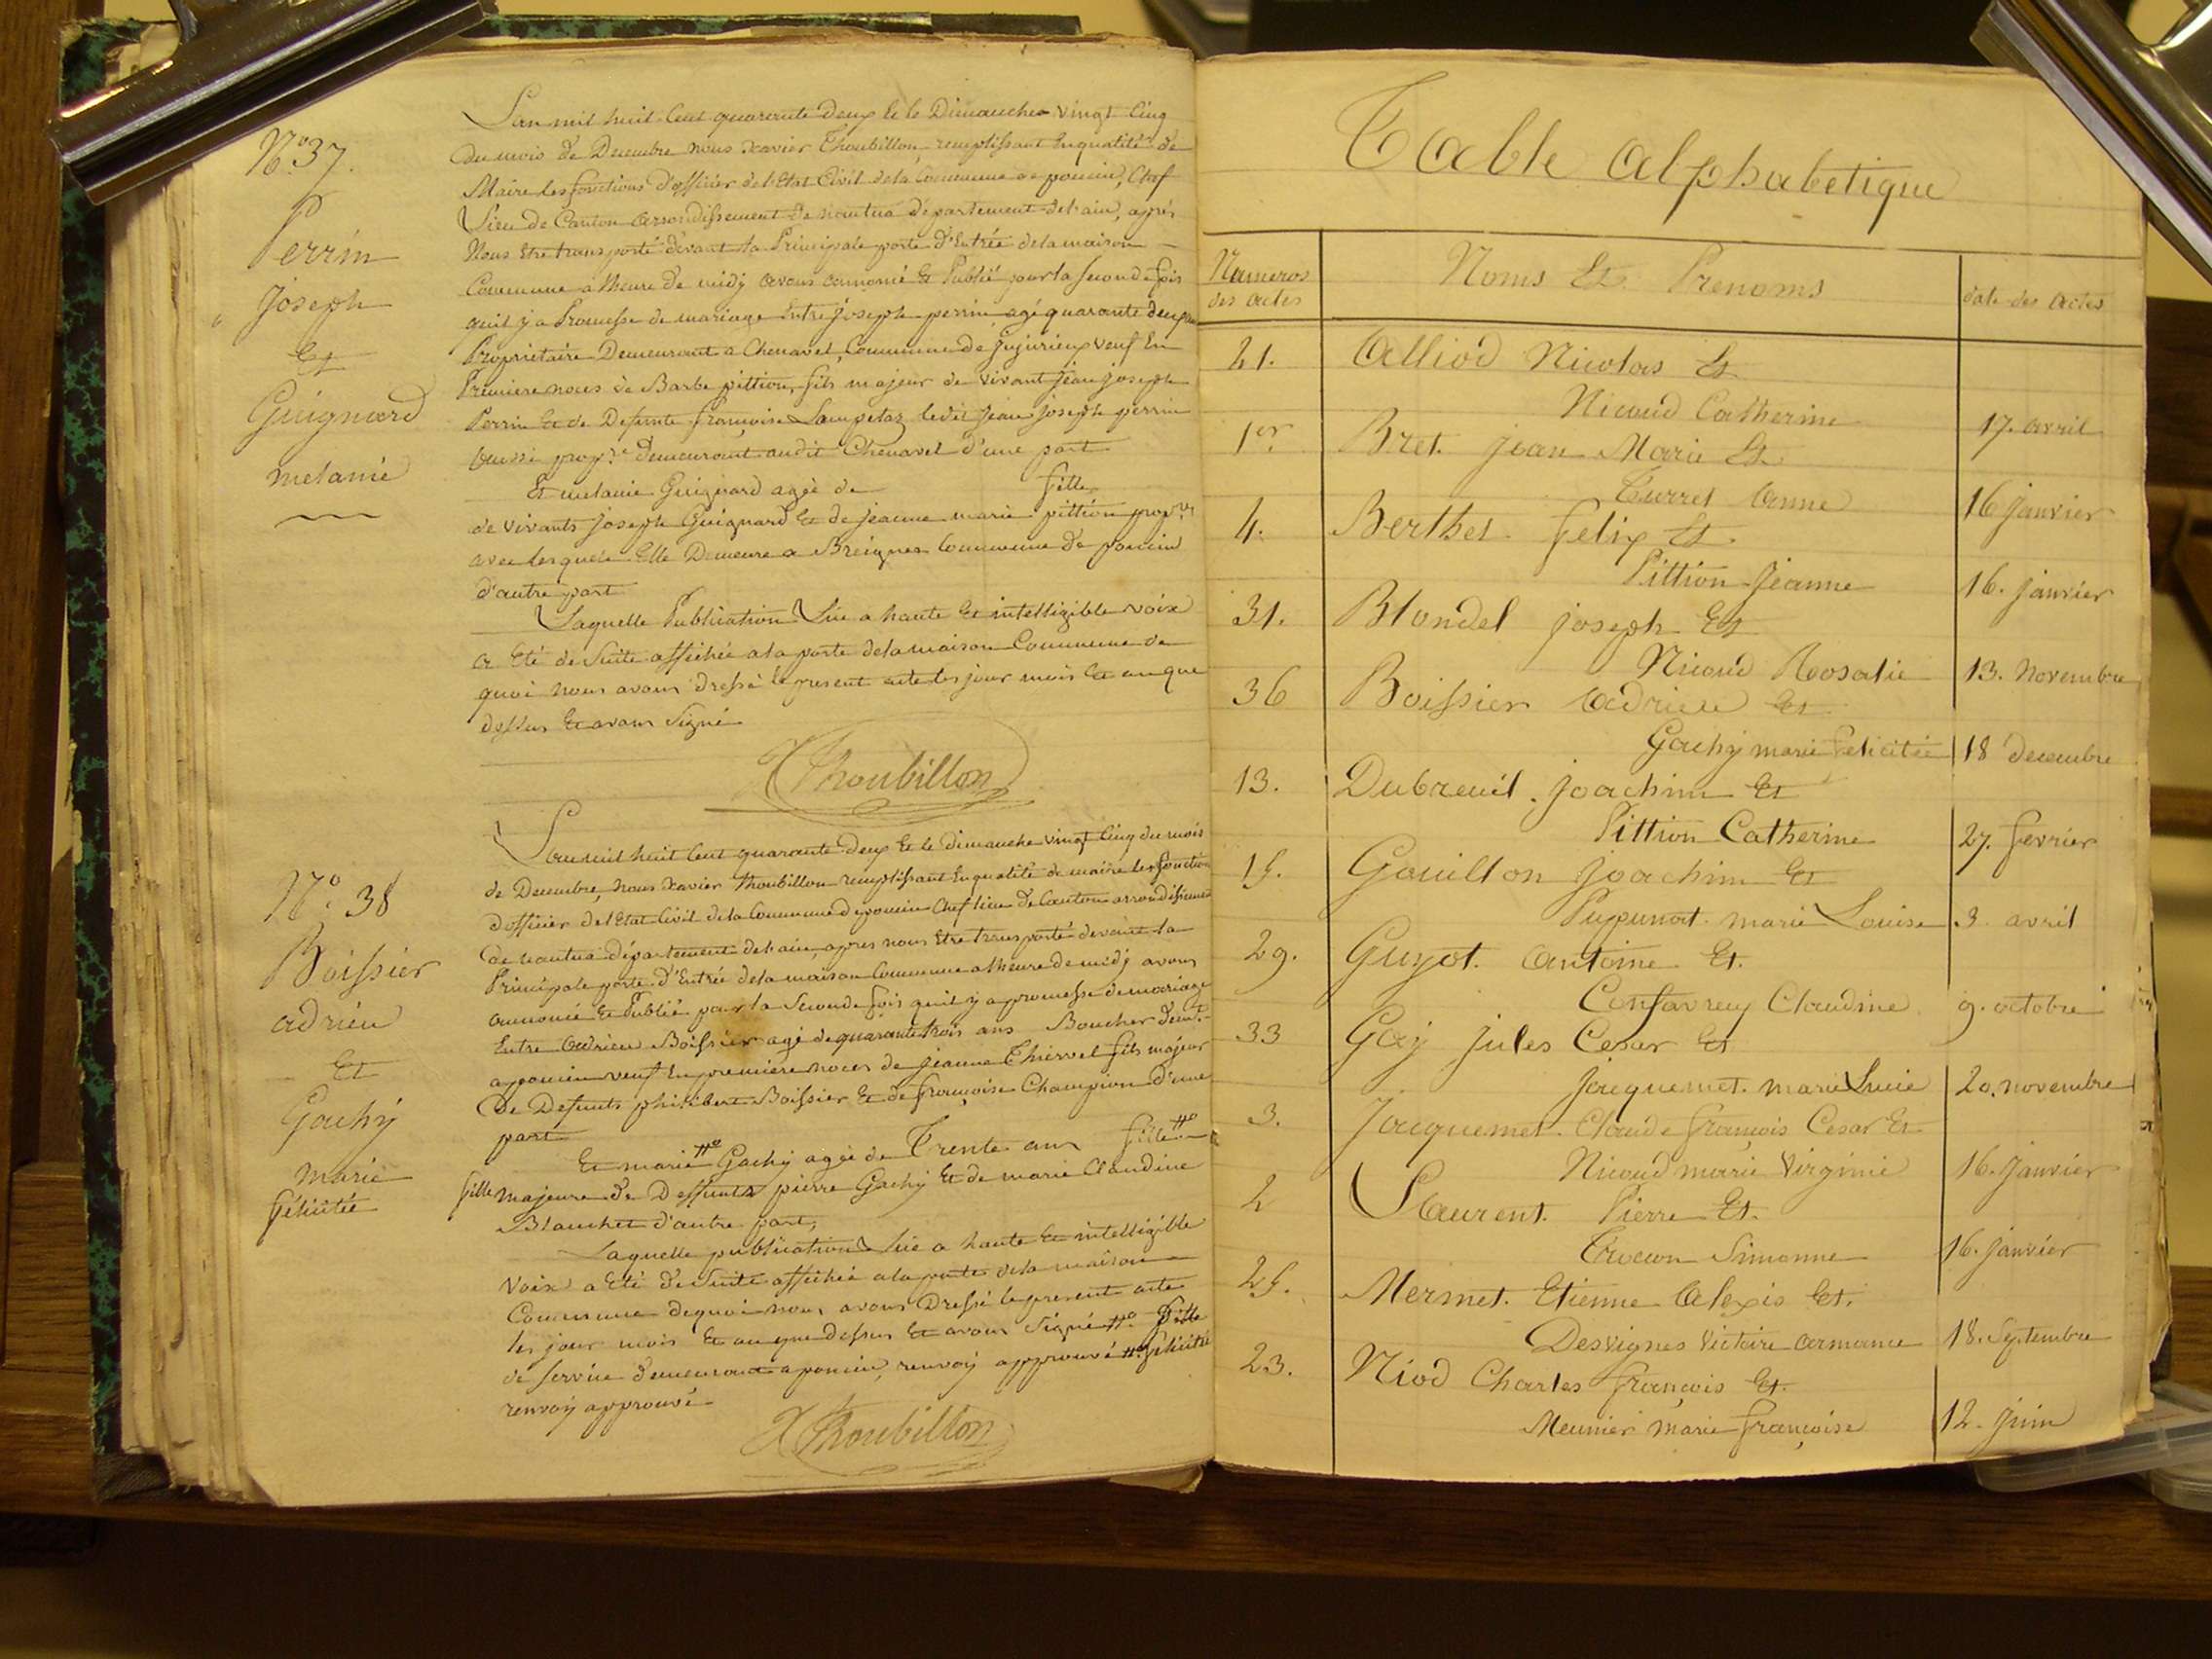 N.º 37.
Perrin
joseph
Et
Guignard
melanie
L'an mil huit Cent quarante Deux Et le Dimanche vingt Cinq
du mois de Decembre nous Xavier Thoubillon, remplissant En qualité de
Maire les fonctions d'officier de l'Etat Civil de la Commune de poncin, Chef
Lieu de Canton arrondissement de nantua département de l'ain, après
Nous Etre transporté devant la Principale porte d'Entrée de la maison
Commune a l'heure de midy avons annoncé Et Publié pour la seconde fois
quil y a Promesse de mariage Entre joseph perrin agé quarante deux ans
Propriétaire Demeurant a Chenavel, Commune de jujurieux veuf En
Premiere noces de Barbe pittion, fils majeur de vivant jean joseph
Perrin Et de Defunte françoise Lempetaz ledit jean joseph perrin
aussi prop.re demeurant audit Chenavel d'une part
Et melanie Guignard agée de fille
de vivants joseph Guignard Et de jeanne marie pittion prop.res
avec lesquels Elle Demeure a Breignes Commune de poncin
d'autre part
Laquelle Publication Lue a haute Et intelligible voix
a Eté de Suite affichée a la porte de la maison Commune de
quoi nous avons dressé le present acte les jour mois Et an que
dessus Et avons Signé
XThoubillon
N.º 38
Boissier
adrien
Et
Gachy
marie
félicitée
L'an mil huit Cent quarante Deux Et le dimanche vingt Cinq du mois
de Decembre, nous Xavier Thoubillon remplissant En qualité de maire les fonctions
d'officier de l'Etat Civil de la Commune de poncin Chef lieu de Canton arrondissement
de nantua département de l'ain, apres nous Etre transporté devant la
Principale porte d'Entrée de la maison Commune a l'heure de midj avons
annoncé Et Publié pour la Seconde fois quil y a promesse de mariage
Entre adrien Boissier agé de quarante trois ans Boucher demt.
a poncin veuf En premiere noces de jeanne Thiervel fils majeur
De Defunts philibert Boissier Et de françoise Champion d'une
part
Et marie #º Gachy agée de Trente ans fille #º
fille majeure de Deffunts pierre Gachy Et de marie Claudine
Blanchet d'autre part,
Laquelle publication Lue a haute Et intelligible
voix a Eté de Suite affichée a la porte de la maison
Commune de quoi nous avons Dressé le present acte
les jour mois Et an que dessus Et avons Signé #º fille
de service demeurant a poncin, renvoy approuvé #º félicitée
renvoy approuvé
XThoubillon
Table alphabetique
Numeros des actes Noms Et Prenoms date des actes
21. Alliod Nicolas Et
Nicoud Catherine 17. avril
1er Bret. jean Marie Et
Turrel anne 16 janvier
4. Berthet felix Et.
Pittion jeanne 16. janvier
31. Blondel joseph Et
Nicoud Rosalie 13. Novembre
36 Boissier adrien Et
Gachy marie felicitée 18 decembre
13. Dubreuil. joachim Et
Pittion Catherine 27. fevrier
15. Gouillon joachim Et
marie Louise 3. avril
29. Guyot. antoine Et.
Confavreux Claudine 9. octobre
33 Gay jules Cesar Et
jacquemet. marie Lucie 20. novembre
3. Jacquemet. Claude françois Cesar Et
Nicoud marie virginie 16. janvier
2 Laurent. Pierre Et.
Trocon Simonne 16. janvier
25. Mermet. Etienne Alexis Et.
Desvignes victoire armance 18. Septembre
23. Niod Charles françois Et.
Meunier marie françoise 12. juin